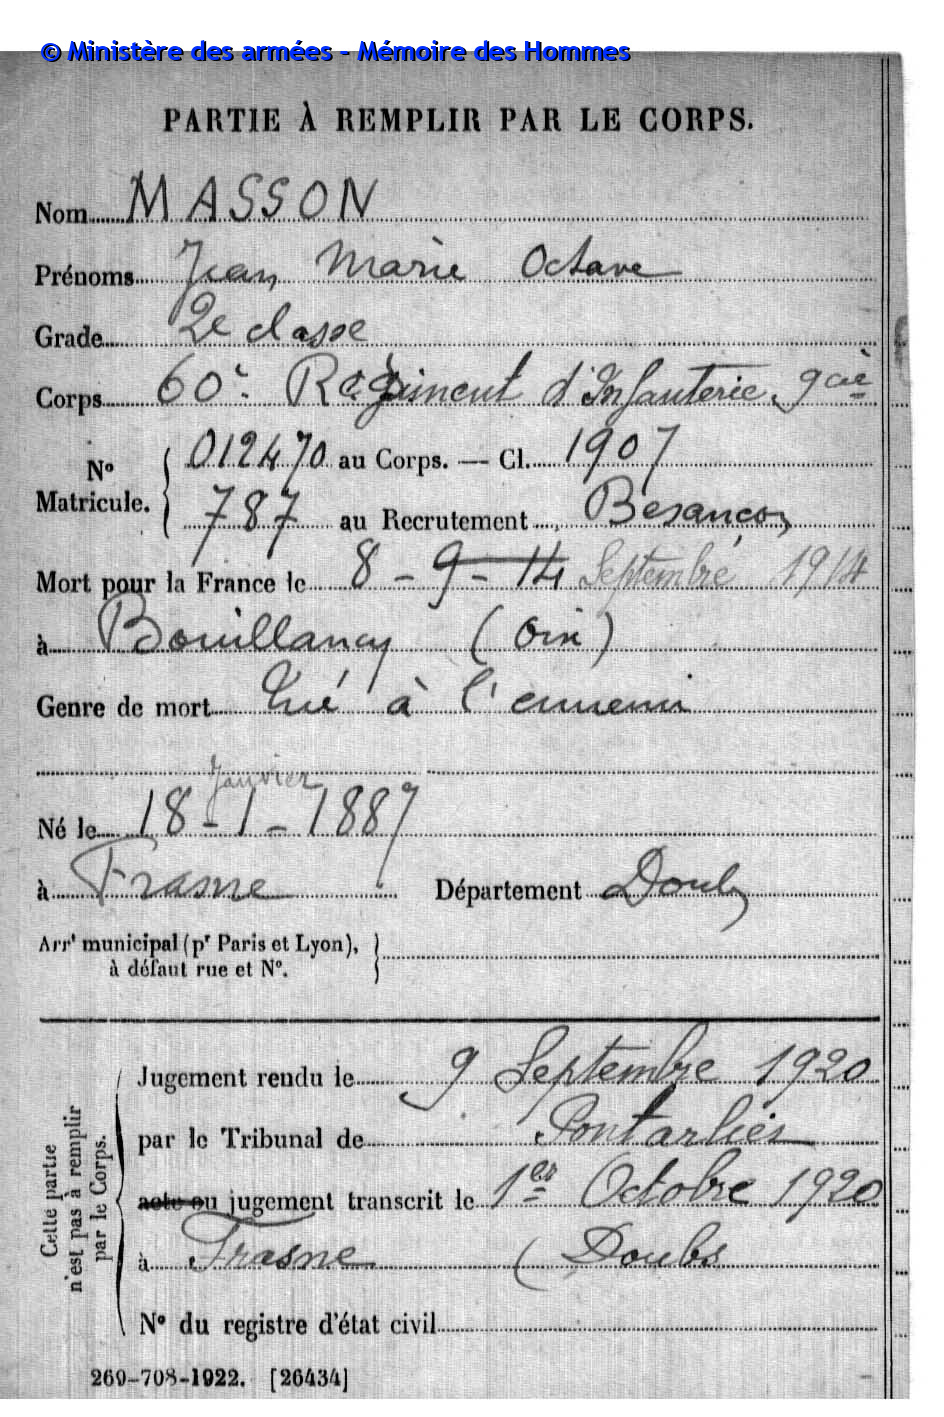 © Ministère des armées - Mémoire des Hommes
PARTIE À REMPLIR PAR LE CORPS.
Nom MASSON
Prénoms Jean Marie Octave
Grade 2e classe
Corps 60e Régiment d'Infanterie, 9 cie
No Matricule. 012470 au Corps. — Cl. 1907
787 au Recrutement Besançon
Mort pour la France le 8 - 9 - 14 Septembre 1914
à Bouillancy (Oise)
Genre de mort Tué à l'ennemi
Janvier
Né le 18 - 1 - 1887
à Frasne Département Doubs
Arrt municipal (pr Paris et Lyon),
à défaut rue et N°.
Cette partie n'est pas à remplir par le Corps.
Jugement rendu le 9 Septembre 1920
par le Tribunal de Pontarlier
acte ou jugement transcrit le 1er Octobre 1920
à Frasne (Doubs
N° du registre d'état civil
269-708-1922. [26434]